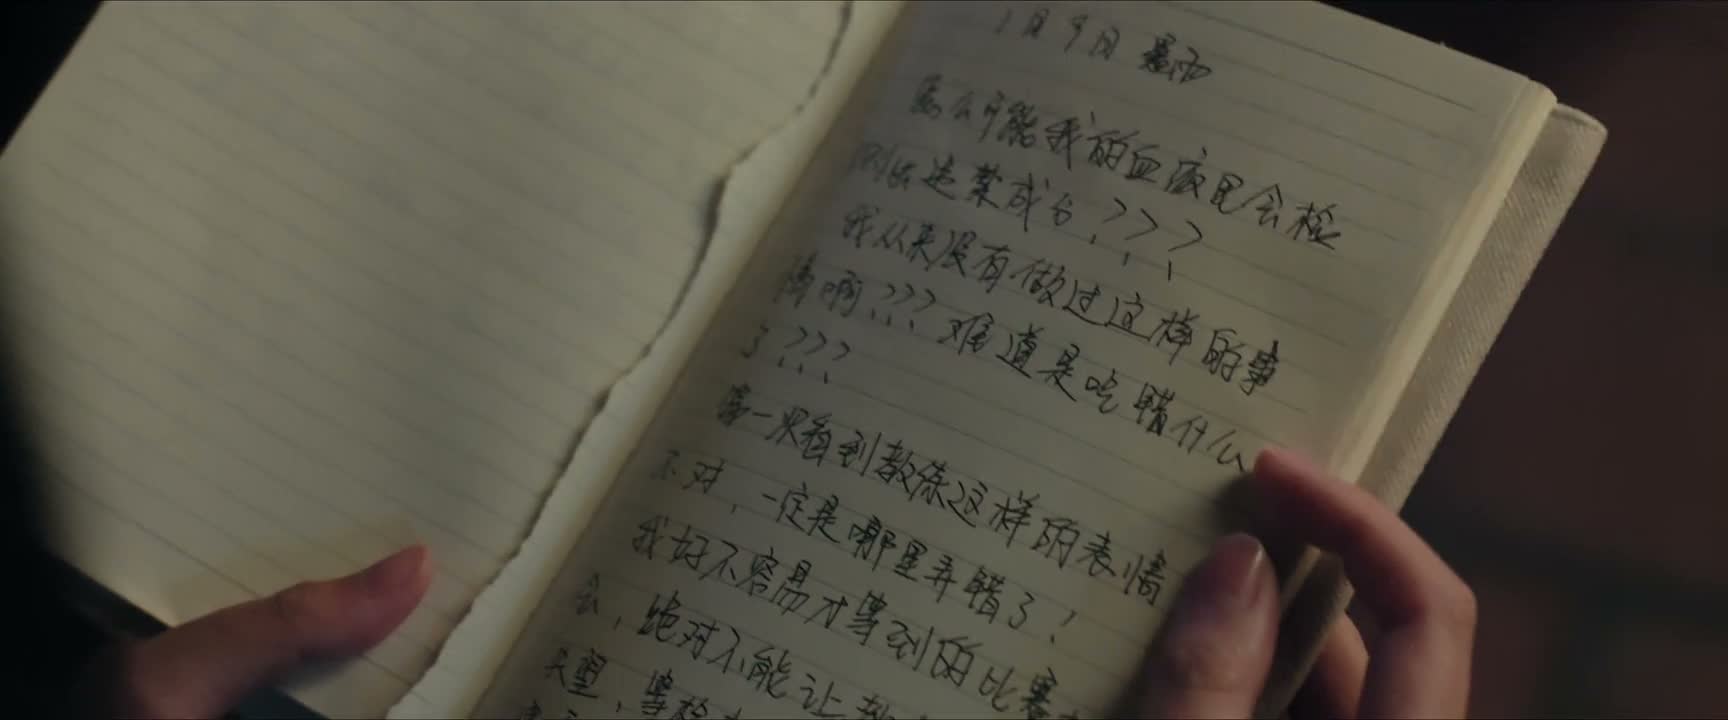 7月9日 暴雨
怎么可能我的血液里会检
测出违禁成分???
我从来没有做过这样的事
情啊???难道是吃错什么
了???
第一次看到教练这样的表情
不对，一定是哪里弄错了!
我好不容易才等到的比赛
会，绝对不能让教
失望，等检